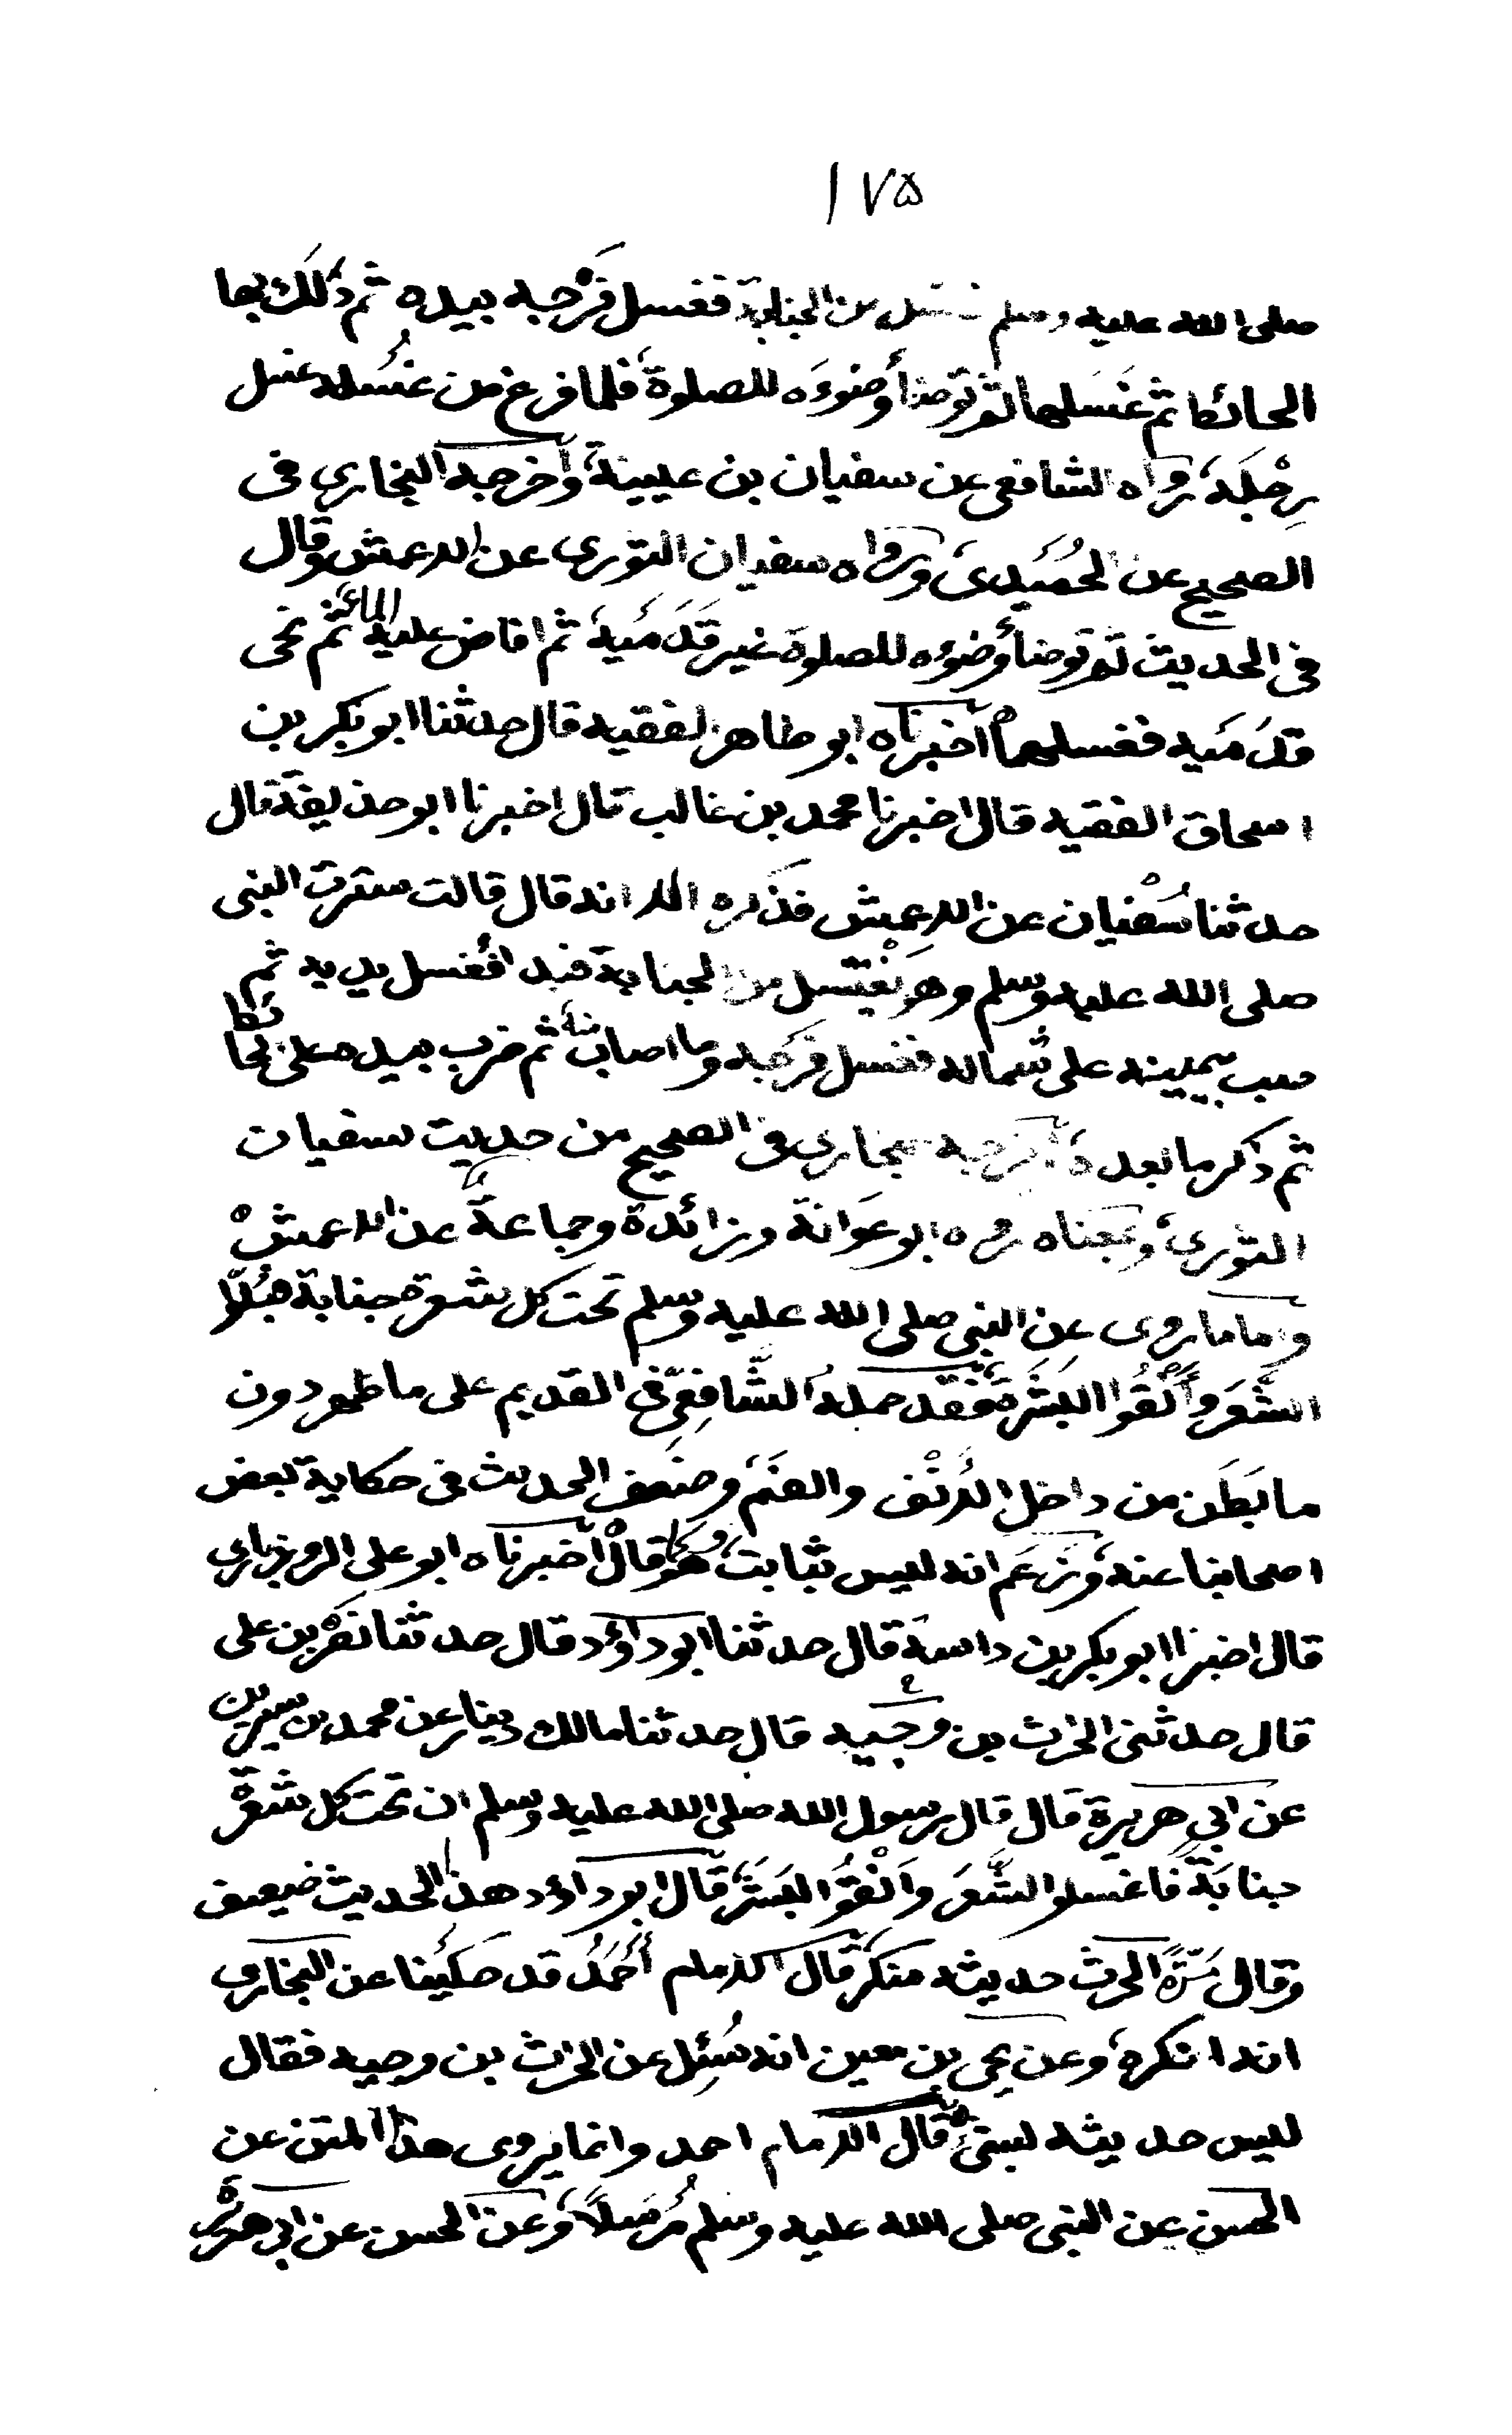 ١٧٥
صلى الله عليه وسلم من الجنابة فغسل فَرْجه بيده ثم دَلَك بها
الحائط ثم غَسَلها ثم توضأ وضوءَه للصلوة، فلما فرغ من غُسله غسل
رِجْلَيه، رواه الشافعى عن سفيان بن عيينة، وأخرجه البخارى فى
الصحيح عن الحُمَيدى، ورواه سفيان الثورى عن الاعمش وقال
فى الحديث ثم توضأ وضوءه للصلوة غير قَدَمَيه، ثم افاض عليه الماء ثم نحى
قدَمَيه فغسلهما أخبرناه ابو طاهر الفقيه قال حدثنا ابو بكر بن
اسحاق الفقيه قال اخبرنا محمد بن غالب قال اخبرنا ابو حذيفة قال
حدثنا سُفْيان عن الاعمش فذكره الا انه قال قالت سترت النبى
صلى الله عليه وسلم وهو يَغْتسل من الجنابة فبدأ فغسل يديه ثم
صب بيمينه على شماله فغسل فَرْجه وما اصابه، ثم ضرب بيده على الحائط
ثم ذكر ما بعده أخرجه البخارى فى الصحيح من حديث سفيان
الثورى، وبمعناه رواه ابو عَوَانة وزائدة وجماعة عن الاعمش ه
وأما ما روى عن النبى صلى الله عليه وسلم تحت كل شعرة جنابة فبُلّوا
الشَّعَر وأَنْقُوا البَشَرَة، فقد حمله الشَّافِعىّ فى القديم على ما ظهر دون
ما بَطَن من داخل الأَنْف والفَم، وضعف الحديث فى حكاية بعض
اصحابنا عنه، وزَعَم انه ليس بثابت، وهو كما قال أخبرناه ابو على الروذبارى
قال اخبرنا ابو بكر بن داسة قال حدثنا ابو داؤد قال حدثنا نَصْر بن على
قال حدثنى الحٰرث بن وجيه قال حدثنا مالك دينار عن محمد بن سيرين
عن ابى هريرة قال قال رسول الله صلى الله عليه وسلم ان تحت كل شَعَرة
جنابَة فاغسلوا الشَّعَر وَأَنْقُوا البَشَر، قال ابو داؤد هذا الحديث ضعيف
وقال مَرَّةً الحٰرث حديثه منكر، قال الامام أَحْمَدُ قد حكَيْنا عن البخارى
انه انكره، وعن يحيى بن معين انه سُئِل عن الحٰرث بن وجيه فقال
ليس حديثه بشئ، قال الامام احمد وانما يروى هذا المتن عن
الحسن عن النبى صلى الله عليه وسلم مُرْسَلاً، وعن الحسن عن ابى هريرة